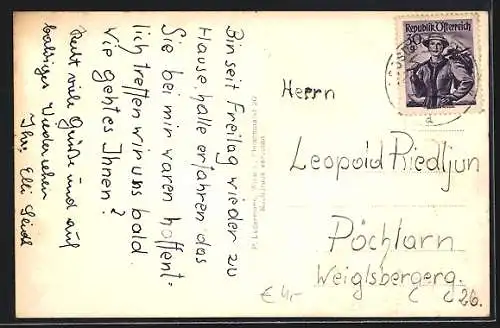 Bin seit Freitag wieder zu
Hause, halle erfahren das
Sie bei mir waren hoffent-
lich treffen wir uns bald.
Wie geht es Ihnen?
Recht viele Grüße und auf
baldiges Wiedersehen
Ihr, Elli Seidl
Republik Österreich
30
g
Herrn
Leopold Riedl jun
Pöchlarn
Weiglsbergerg.
26.
€ 4,-